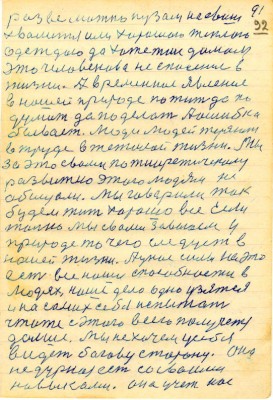 91
92
разве можно пузам не своим
хвалится или хорошою теплою
одеждою да хожетим домом
Это человекова не спасение в
жизни. А временное явление
в нашей природе пожит да по
думат да поделат А ошибка
бывает. Люди людей теряют
в труде в тежолой жизни. Мы
за это своими по теиретическому
развитию этого людям не
обищали. Мы говорили так
будем жит хорошо все если
толко мы своим завоюем у
природе то чего следует в
нашей жизни. А у нас сил на это
ест все наши способности в
людях, наше дело одно узятся
и на самих себя испытат
что же с этого всего получется
далше. Мы не хочем у себя
видет богову сторону. Она
не дурна ест со своими
навыками. она учет нас